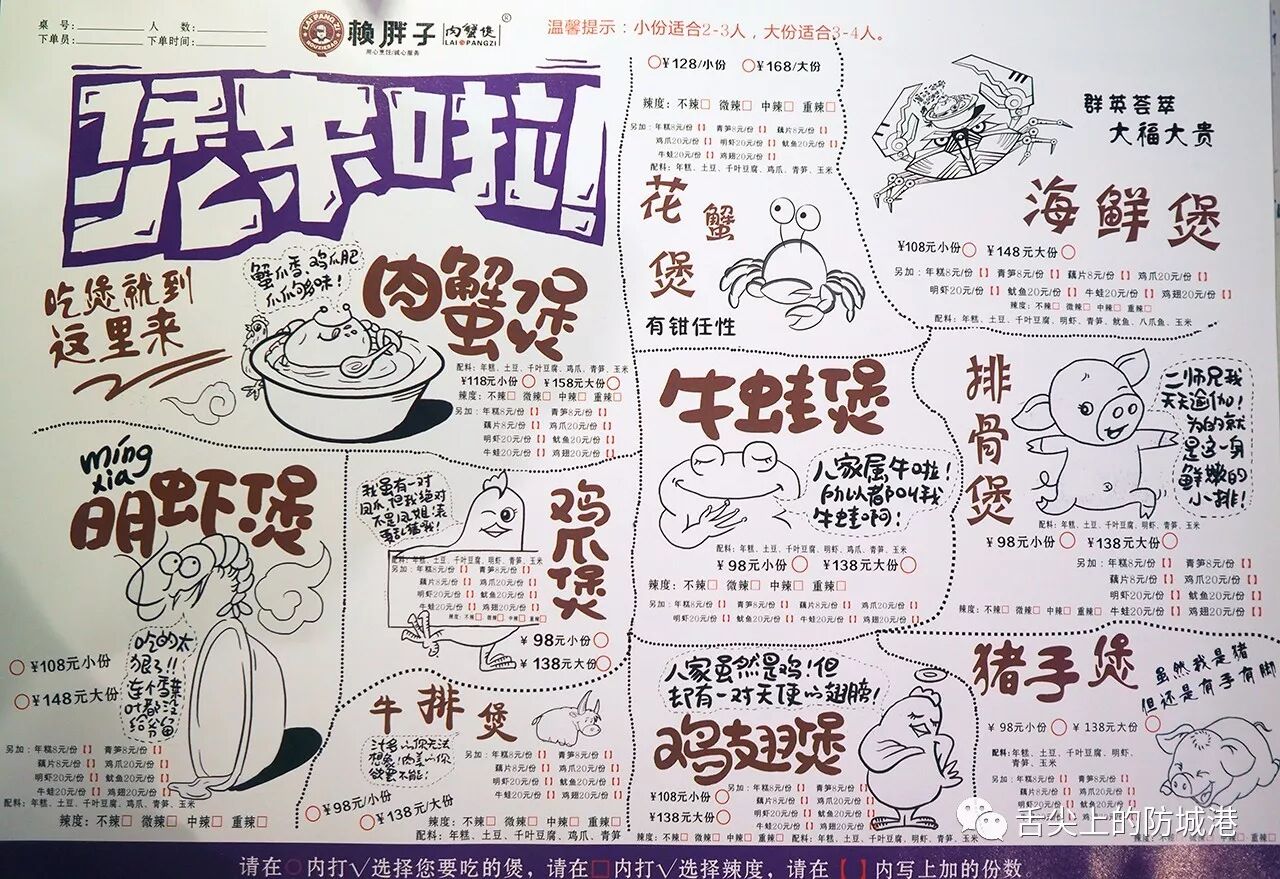 桌 号：
人 数：
下单员：
下单时间：
LAI PANGZI
ROUXIEBAO
赖胖子
肉蟹煲
LAI PANGZI
®
用心烹饪/诚心服务
温馨提示：小份适合2-3人，大份适合3-4人。
煲来啦!
吃煲就到
这里来
蟹爪香、鸡爪肥
爪爪够味！
肉蟹煲
配料：年糕、土豆、千叶豆腐、鸡爪、青笋、玉米
¥118元小份 ○ ¥158元大份○
辣度：不辣□ 微辣□ 中辣□ 重辣□
另加：年糕8元/份【】 青笋8元/份【】
藕片8元/份【】 鸡爪20元/份【】
明虾20元/份【】 鱿鱼20元/份【】
牛蛙20元/份【】 鸡翅20元/份【】
○¥128/小份 ○¥168/大份
辣度：不辣□ 微辣□ 中辣□ 重辣□
另加：年糕8元/份【】 青笋8元/份【】 藕片8元/份【】
鸡爪20元/份【】 明虾20元/份【】 鱿鱼20元/份【】
牛蛙20元/份【】 鸡翅20元/份【】
配料：年糕、土豆、千叶豆腐、鸡爪、青笋、玉米
花蟹煲
有钳任性
群英荟萃
大福大贵
海鲜煲
¥108元小份○ ¥148元大份○
另加：年糕8元/份【】 青笋8元/份【】 藕片8元/份【】 鸡爪20元/份【】
明虾20元/份【】 鱿鱼20元/份【】 牛蛙20元/份【】 鸡翅20元/份【】
辣度：不辣□ 微辣□ 中辣□ 重辣□
配料：年糕、土豆、千叶豆腐、明虾、青笋、鱿鱼、八爪鱼、玉米
míng
xia
明虾煲
吃的太
狠了!!
○¥108元小份
○¥148元大份
另加：年糕8元/份【】 青笋8元/份【】
藕片8元/份【】 鸡爪20元/份【】
明虾20元/份【】 鱿鱼20元/份【】
牛蛙20元/份【】 鸡翅20元/份【】
配料：年糕、土豆、千叶豆腐、鸡爪、青笋、玉米
辣度：不辣□ 微辣□ 中辣□ 重辣□
我虽有一对
凤爪,但我绝对
不是凤姐,表
再乱猜我！
鸡爪煲
配料：年糕、土豆、千叶豆腐、明虾、青笋、玉米
另加：年糕8元/份【】 青笋8元/份【】
藕片8元/份【】 鸡爪20元/份【】
明虾20元/份【】 鱿鱼20元/份【】
牛蛙20元/份【】 鸡翅20元/份【】
辣度：不辣□ 微辣□ 中辣□ 重辣□
¥ 98元小份○
¥ 138元大份○
牛蛙煲
人家属牛啦！
所以都叫我
牛蛙啊！
配料：年糕、土豆、千叶豆腐、明虾、鸡爪、青笋、玉米
¥ 98元小份○ ¥ 138元大份○
辣度：不辣□ 微辣□ 中辣□ 重辣□
另加：年糕8元/份【】 青笋8元/份【】 藕片8元/份【】 鸡爪20元/份【】
明虾20元/份【】 鱿鱼20元/份【】 牛蛙20元/份【】 鸡翅20元/份【】
排骨煲
二师兄我
天天瑜伽！
为的就
是这一身
鲜嫩的
小排！
配料：年糕、土豆、千叶豆腐、明虾、青笋、玉米
¥ 98元小份○ ¥ 138元大份○
另加：年糕8元/份【】 青笋8元/份【】
藕片8元/份【】 鸡爪20元/份【】
明虾20元/份【】 鱿鱼20元/份【】
辣度：不辣□ 微辣□ 中辣□ 重辣□ 牛蛙20元/份【】 鸡翅20元/份【】
牛排煲
汁多的你无法
想象！肉美的你
欲罢不能！
另加：年糕8元/份【】 青笋8元/份【】
藕片8元/份【】 鸡爪20元/份【】
明虾20元/份【】 鱿鱼20元/份【】
牛蛙20元/份【】 鸡翅20元/份【】
○¥98元/小份
○¥138元/大份
辣度：不辣□ 微辣□ 中辣□ 重辣□
配料：年糕、土豆、千叶豆腐、明虾、鸡爪、青笋
人家虽然是鸡！但
却有一对天使的翅膀！
鸡翅煲
¥108元小份○
¥138元大份○
另加：年糕8元/份【】 青笋8元/份【】
藕片8元/份【】 鸡爪20元/份【】
明虾20元/份【】 鱿鱼20元/份【】
牛蛙20元/份【】 鸡翅20元/份【】
辣度：不辣□ 微辣□ 中辣□ 重辣□ 配料：年糕、土豆、千叶豆腐、明虾、青笋、玉米
猪手煲
虽然我是猪
但还是有手有脚
¥ 98元小份○ ¥ 138元大份○
配料：年糕、土豆、千叶豆腐、明虾、
青笋、玉米
另加：年糕8元/份【】 青笋8元/份【】
藕片8元/份【】 鸡爪20元/份【】
舌尖上的防城港
请在○内打√选择您要吃的煲，请在□内打√选择辣度，请在【】内写上加的份数。